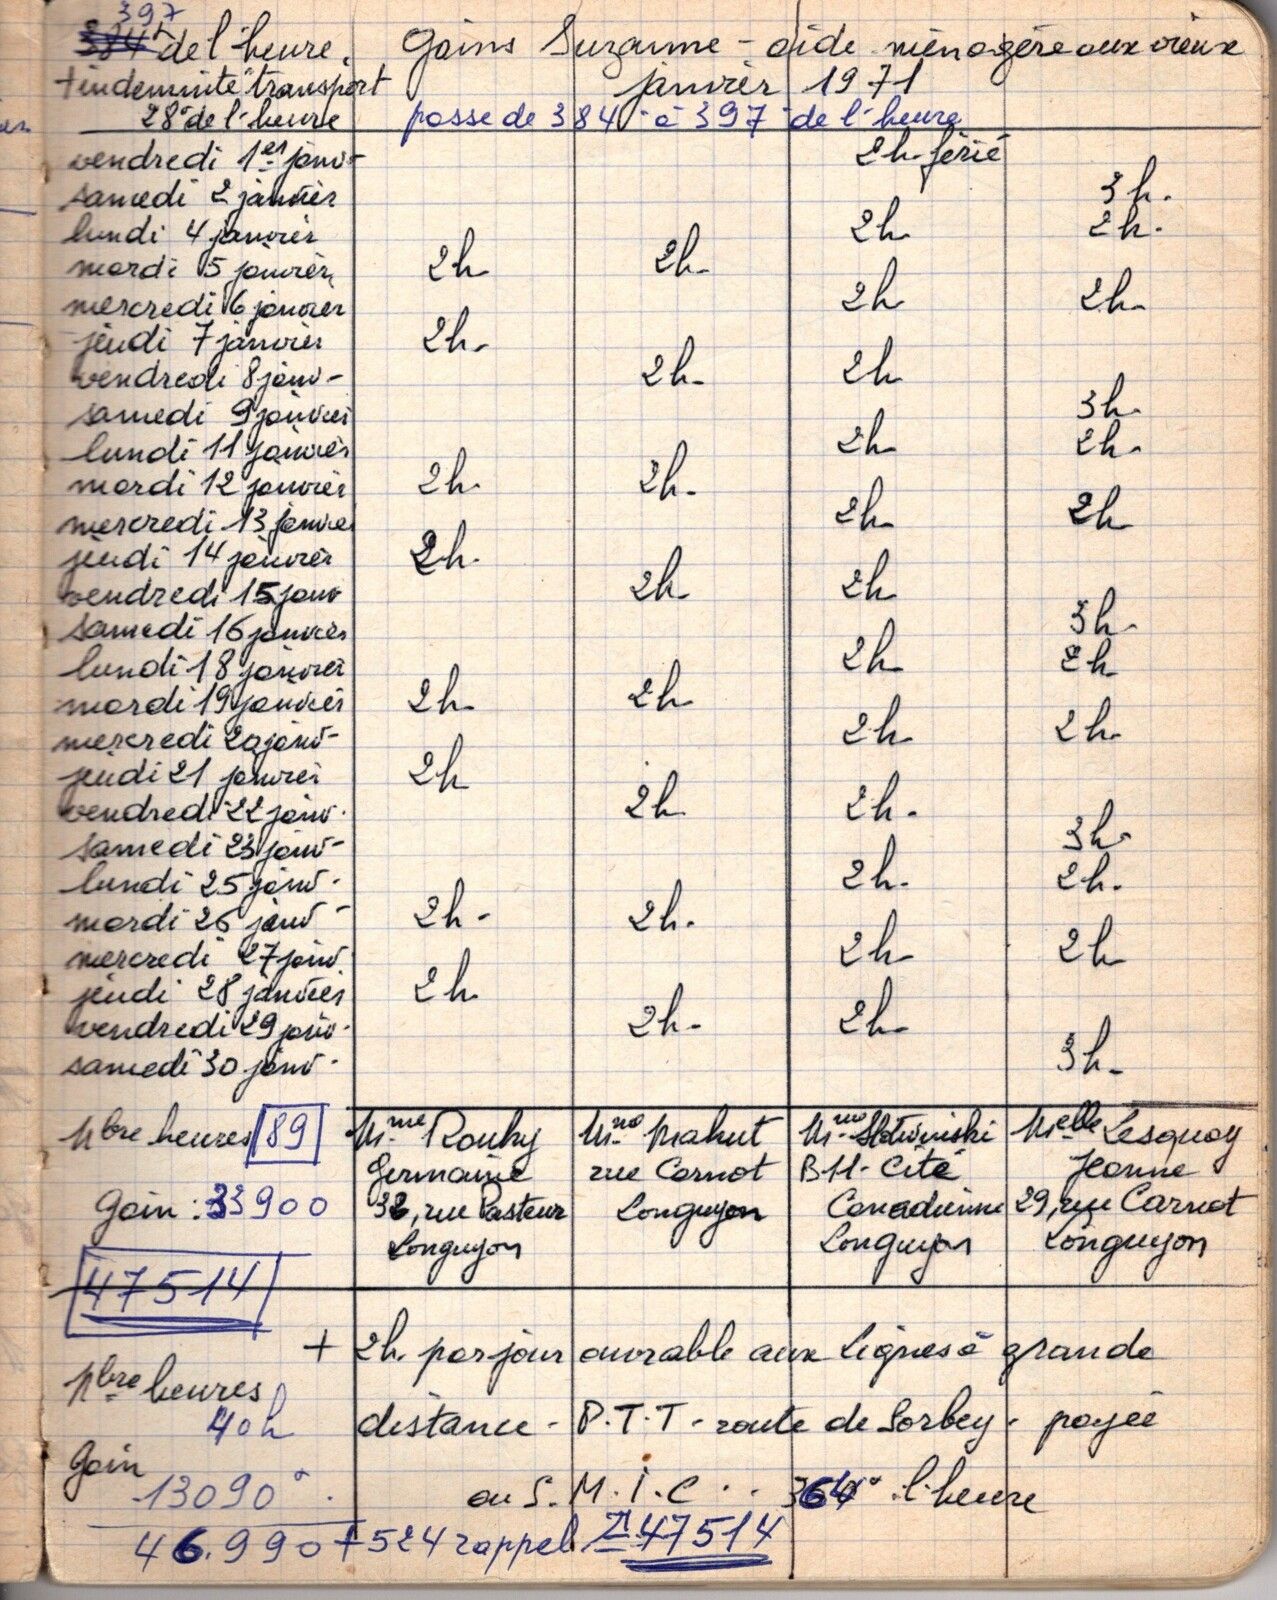 397
384 de l'heure. Gains Suzanne - aide ménagère aux vieux
+ indemnité transport janvier 1971
28 de l'heure passe de 384 à 397 de l'heure
vendredi 1er janv- 2h. férié
samedi 2 janvier 3h.
lundi 4 janvier 2h. 2h.
mardi 5 janvier 2h. 2h.
mercredi 6 janvier 2h 2h.
jeudi 7 janvier 2h.
vendredi 8 janv- 2h. 2h.
samedi 9 janvier 3h.
lundi 11 janvier 2h. 2h.
mardi 12 janvier 2h. 2h.
mercredi 13 janvier 2h. 2h
jeudi 14 janvier 2h.
vendredi 15 janv 2h. 2h.
samedi 16 janvier 3h.
lundi 18 janvier 2h. 2h.
mardi 19 janvier 2h. 2h.
mercredi 20 janv- 2h. 2h.
jeudi 21 janvier 2h
vendredi 22 janv. 2h. 2h.
samedi 23 janv- 3h.
lundi 25 janv. 2h. 2h.
mardi 26 janv- 2h. 2h.
mercredi 27 janv. 2h. 2h.
jeudi 28 janvier 2h.
vendredi 29 janv. 2h. 2h.
samedi 30 janv. 3h.
Nbre heures 89 Mme Rouhy Mme Mahut Mme Mlle Lesquoy
Germaine rue Carnot B11- Cité Jeanne
Gain : 33900 rue Pasteur Longuyon Canadienne 29, rue Carnot
Longuyon Longuyon Longuyon
47514
+ 2h. par jour ouvrable aux Lignes à grande
Nbre heures
40h distance - P.T.T - route de Sorbey. payée
Gain
13090 au S.M.I.C . . 364 l'heure
46.990 + 524 rappel = 47514